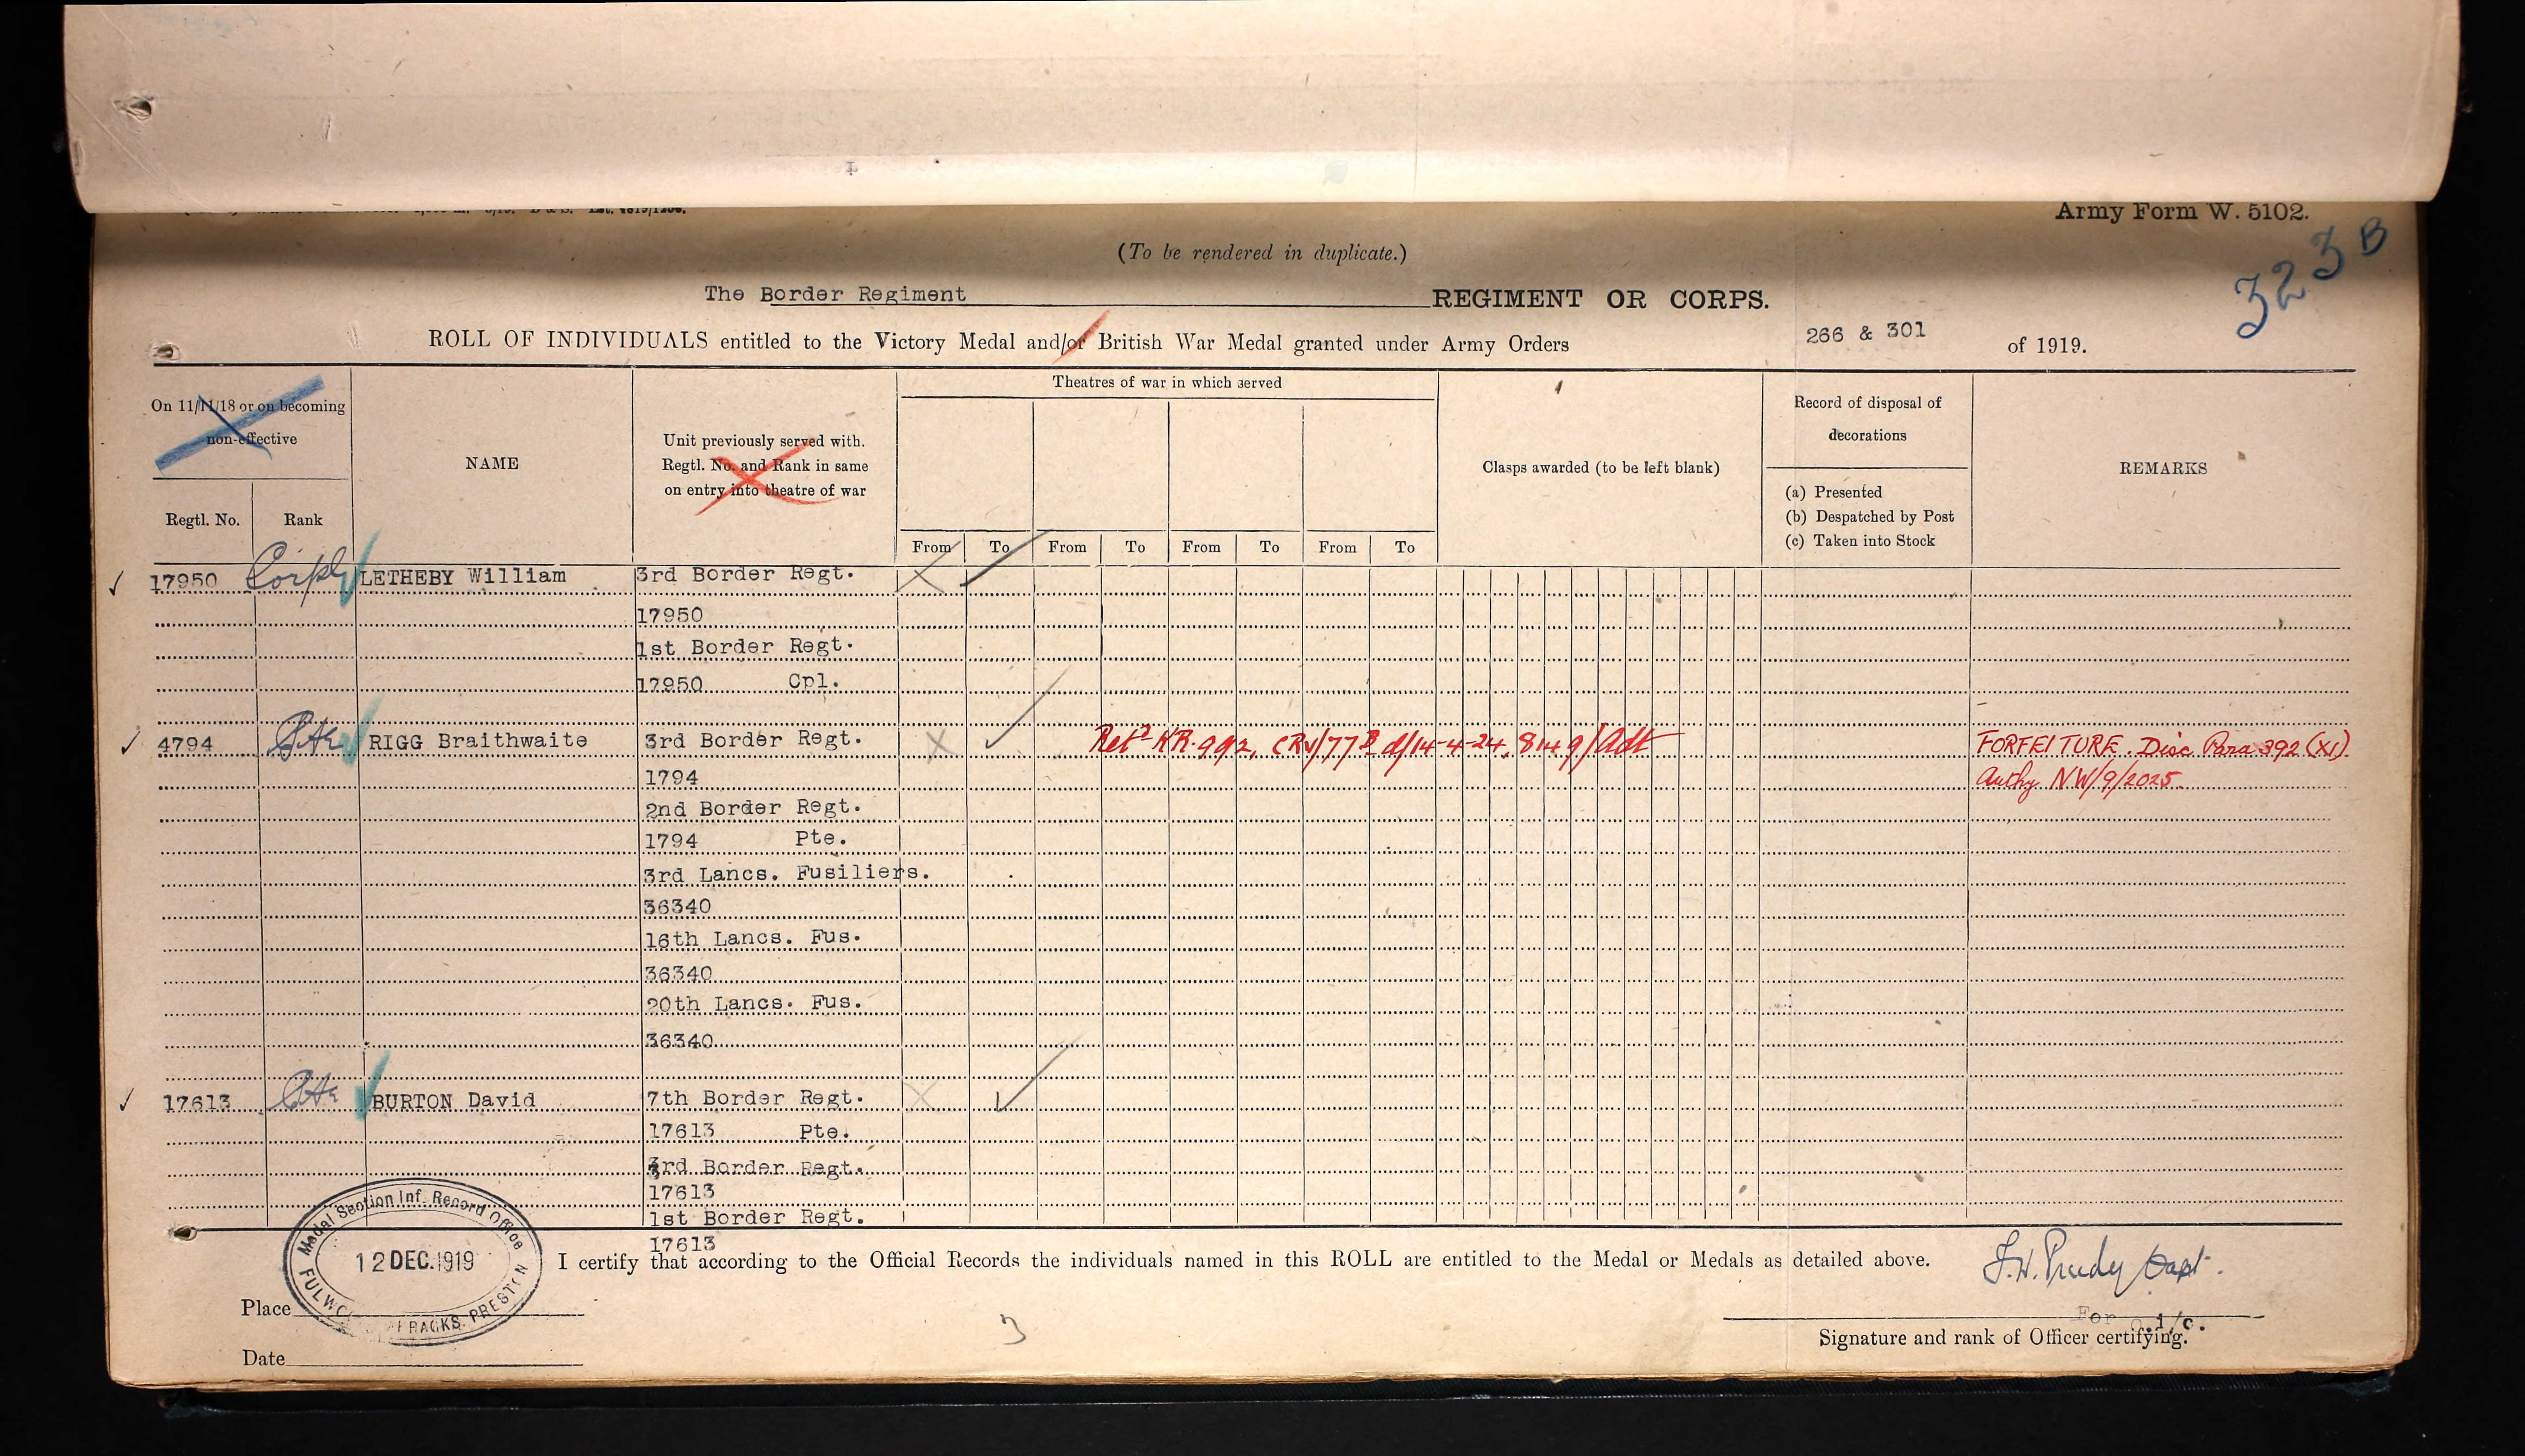 Army Form W. 5102.
323 B
(To be rendered in duplicate.)
The Border Regiment REGIMENT OR CORPS.
ROLL OF INDIVIDUALS entitled to the Victory Medal and/or British War Medal granted under Army Orders 266 & 301 of 1919.
On 11/11/18 or on becoming
non-effective
Regtl. No.
Rank
NAME
Unit previously served with.
Regtl. No. and Rank in same
on entry into theatre of war
Theatres of war in which served
From To From To From To From To
Clasps awarded (to be left blank)
Record of disposal of
decorations
(a) Presented
(b) Despatched by Post
(c) Taken into Stock
REMARKS
17950 Corpl LETHEBY William 3rd Border Regt.
17950
1st Border Regt.
17950 Cpl.
4794 Pte RIGG Braithwaite 3rd Border Regt. Retd KR. 992, CRV/77B d/14-4-24, 8149/Adt FORFEITURE. Disc. Para 392 (XI).
1794 Authy NW/9/2025.
2nd Border Regt.
1794 Pte.
3rd Lancs. Fusiliers.
36340
16th Lancs. Fus.
36340
20th Lancs. Fus.
36340
17613 Pte BURTON David 7th Border Regt.
17613 Pte.
3rd Border Regt.
17613
1st Border Regt.
17613
Medal Section Inf. Record Office
12 DEC. 1919
PRESTON
I certify that according to the Official Records the individuals named in this ROLL are entitled to the Medal or Medals as detailed above.
Capt.
Place
3
For i/c.
Signature and rank of Officer certifying.
Date